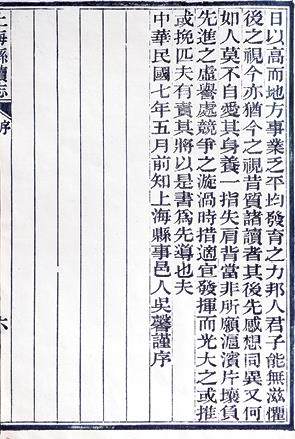 日以高而地方事業之平均發育之力邦人君子能無滋懼
後之視今亦猶今之視昔質諸讀者其後先感想同異又何
如人莫不自愛其身養一指失肩背當非所願滬濱片壤負
先進之虛譽處競爭之漩渦時措適宜發揮而光大之或推
或挽匹夫有責其將以是書爲先導也夫
中華民國七年五月前知上海縣事邑人吳馨謹序
上海縣續志
序
六